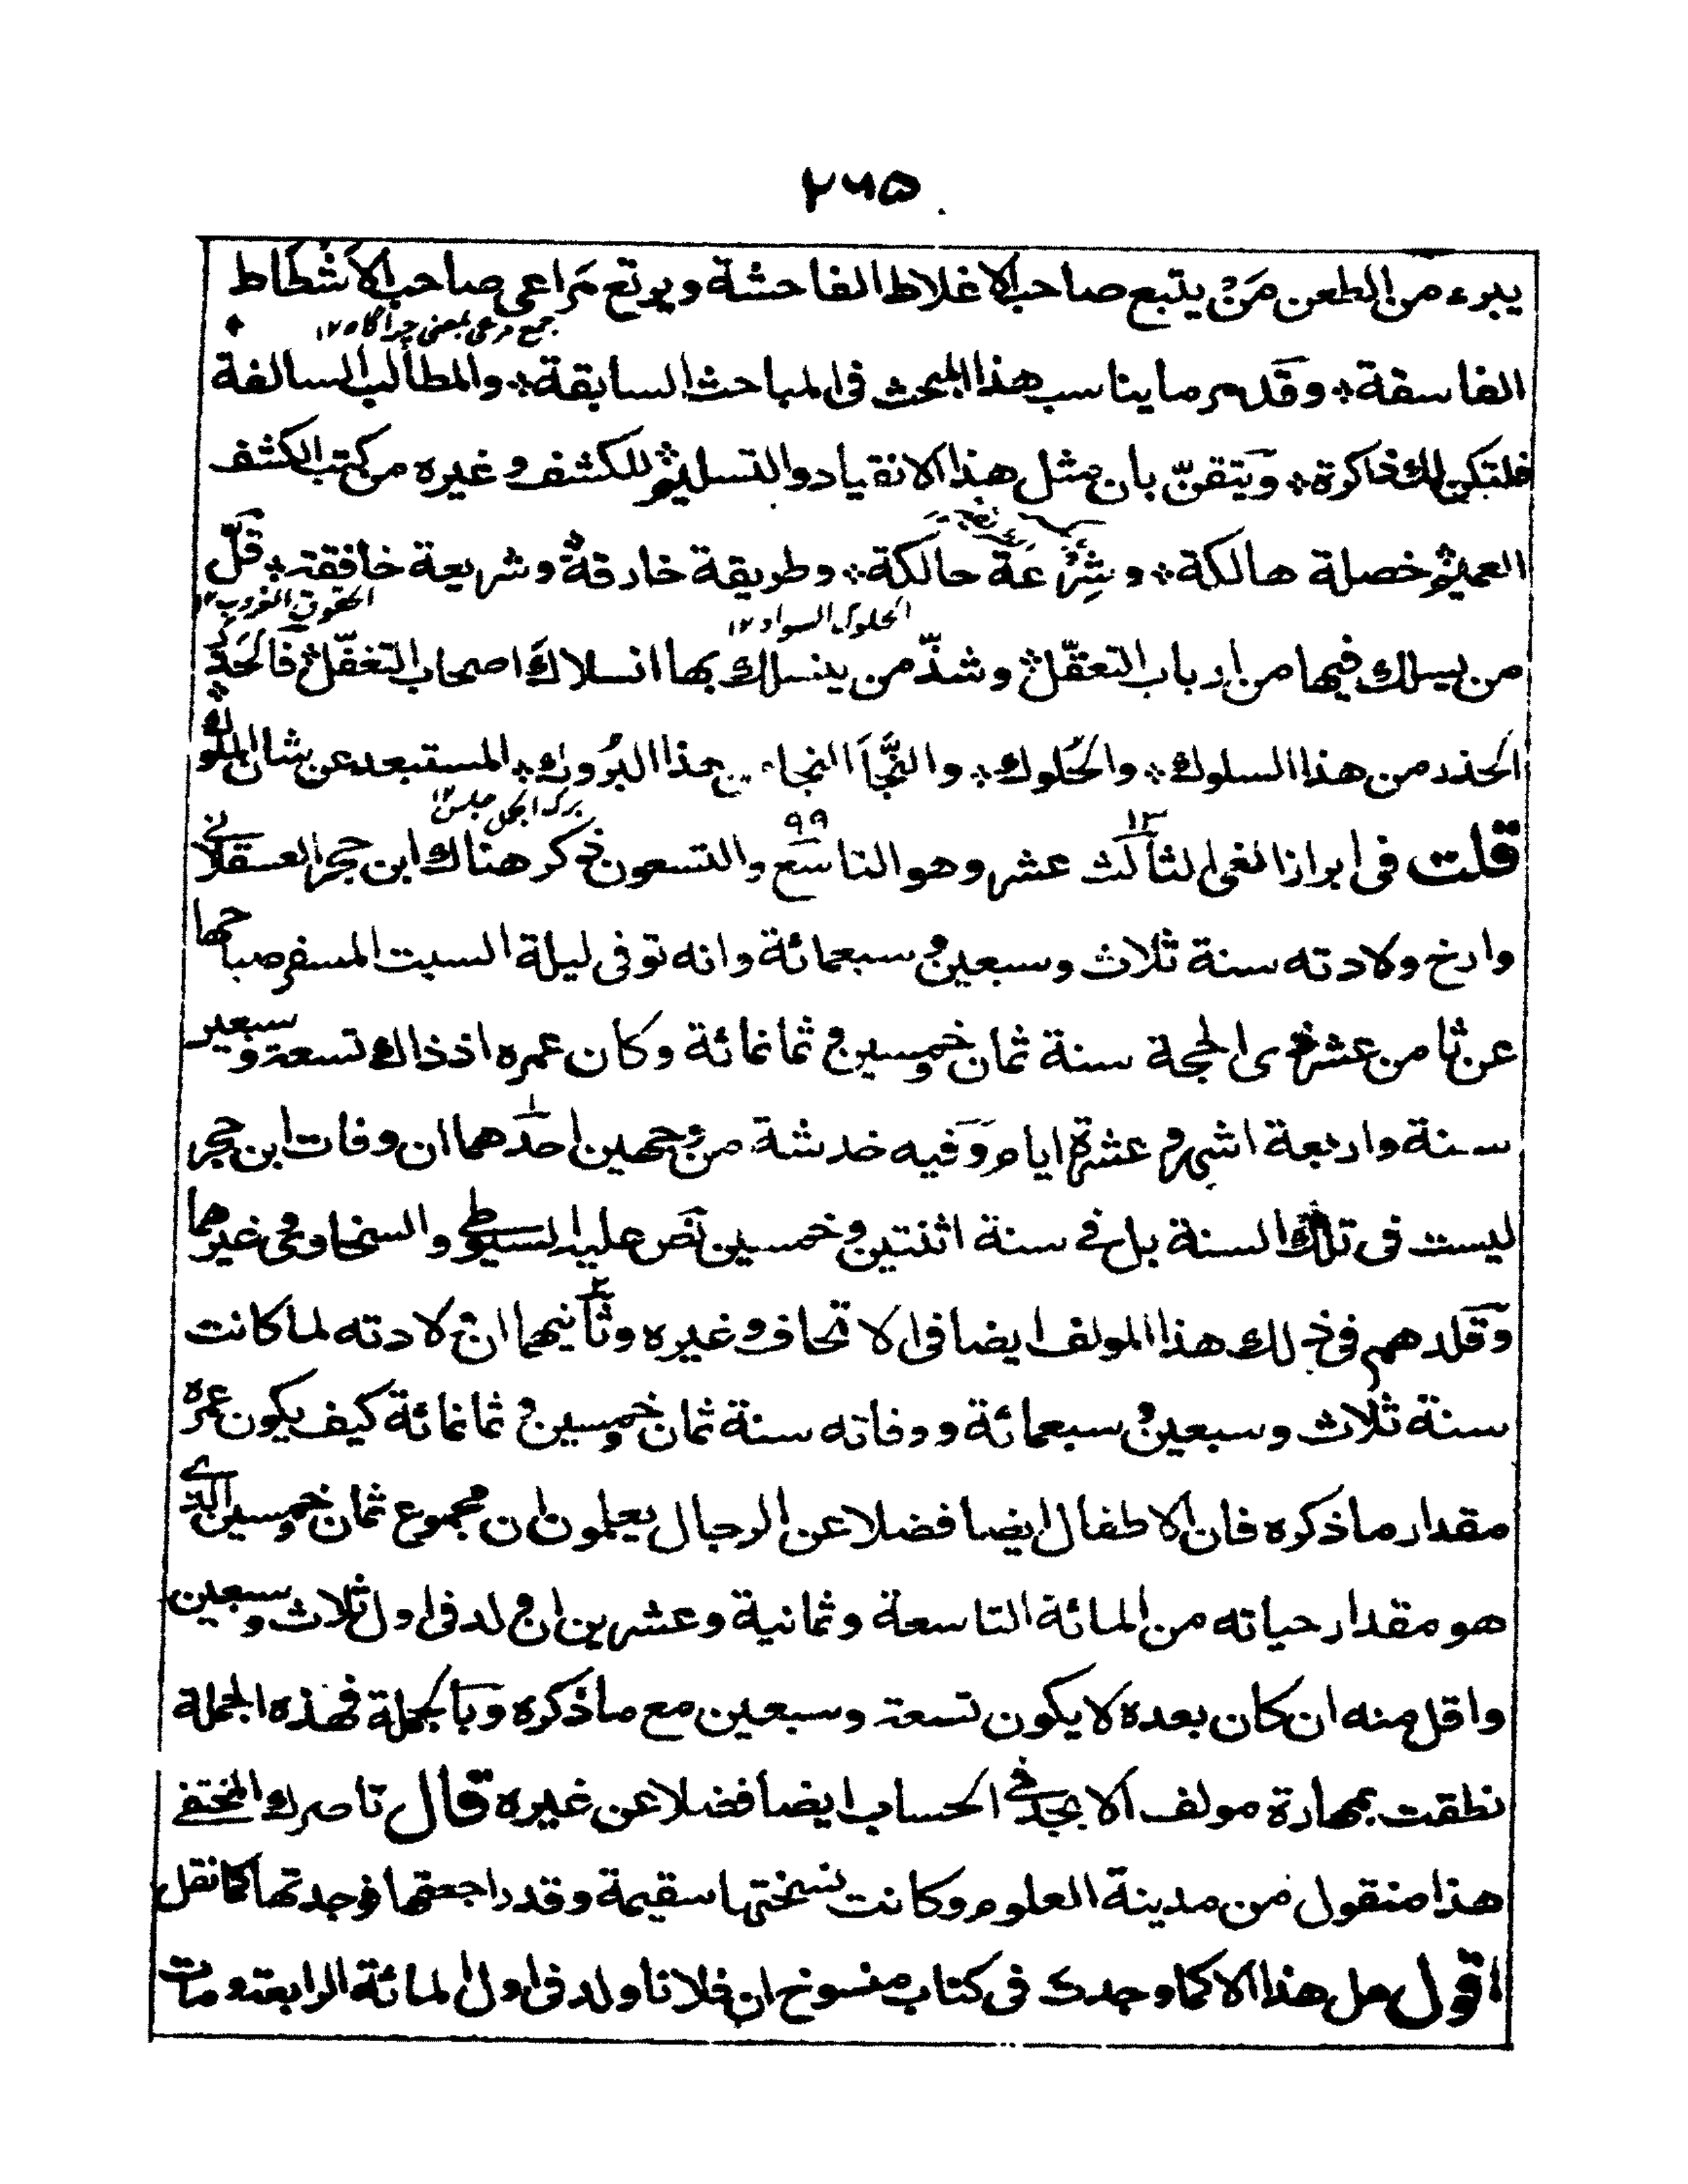 ۲۶۵
يبرء من الطعن مَنْ يتبع صاحب الاغلاط الفاحشة ويرتع مَراعى صاحب الاشطاط
جمع مرعى بمعنى چراگاه ۱۲
الفاسقة؞ وقد مر ما يناسب هذا المبحث فى المباحث السابقة؞ والمطالب السالفة؞
فلتكن لك ذاكرة؞ وتيقنّ بان مثل هذا الانقياد والتسليم للكشف وغيره من كتب الكشف
العميم خصلة هالكة؞ وشِرْعَة حالكة؞ وطريقة خارقة وشريعة خافقة؞ قلّ
الخفوق الغروب ۱۲
الحلوك السواد ۱۲
من يسلك فيها من ارباب التعقّل وشذّ من ينسلك بها انسلاكَ اصحاب التغفّل فالحَذَر؞
الحذر من هذا السلوك؞ والحُلوك؞ والنَّجاَ النجاء من هذا البُروك؞ المستبعد عن شان الملوك
برك الجمل جلس ۱۲
قلت فى ابراز الغى الثالث عشر وهو التاسع والتسعون ذكر هناك ابن حجر العسقلانے
۱۳ ۹۹
وارخ ولادته سنة ثلاث وسبعين وسبعمائة وانه توفى ليلة السبت المسفر صباحها
عن ثامن عشر ذى الحجة سنة ثمان وخمسين وثمانمائة وكان عمره اذ ذاك تسعة وسبعين
سنة واربعة اشهر وعشرة ايام وفيه خدشة من وجهين احدهما ان وفات ابن حجر
ليست فى تلك السنة بل فے سنة اثنتين وخمسين نص عليه السيوطے والسخاوى وغيرهما
وقلدهم فى ذلك هذا المولف ايضا فى الاتحاف وغيره وثانيهما ان ولادته لما كانت
سنة ثلاث وسبعين وسبعمائة ووفاته سنة ثمان وخمسين وثمانمائة كيف يكون عمره
مقدار ما ذكره فان الاطفال ايضا فضلا عن الرجال يعلمون ان مجموع ثمان وخمسين الذے
هو مقدار حياته من المائة التاسعة وثمانية وعشرين ان ولد فى اول ثلاث وسبعين
واقل منه ان كان بعده لا يكون تسعة وسبعين مع ما ذكره وبالجملة فهذه الجملة
نطقت بمهارة مولف الابجد فے الحساب ايضا فضلا عن غيره قال ناصرك المختفے
هذا منقول من مدينة العلوم وكانت نسختها سقيمة وقد راجعتها فوجدتها كما نقل
اقول هل هذا الا كما وجدك فى كتاب منسوخ ان فلانا ولد فى اول المائة الرابعة ومات